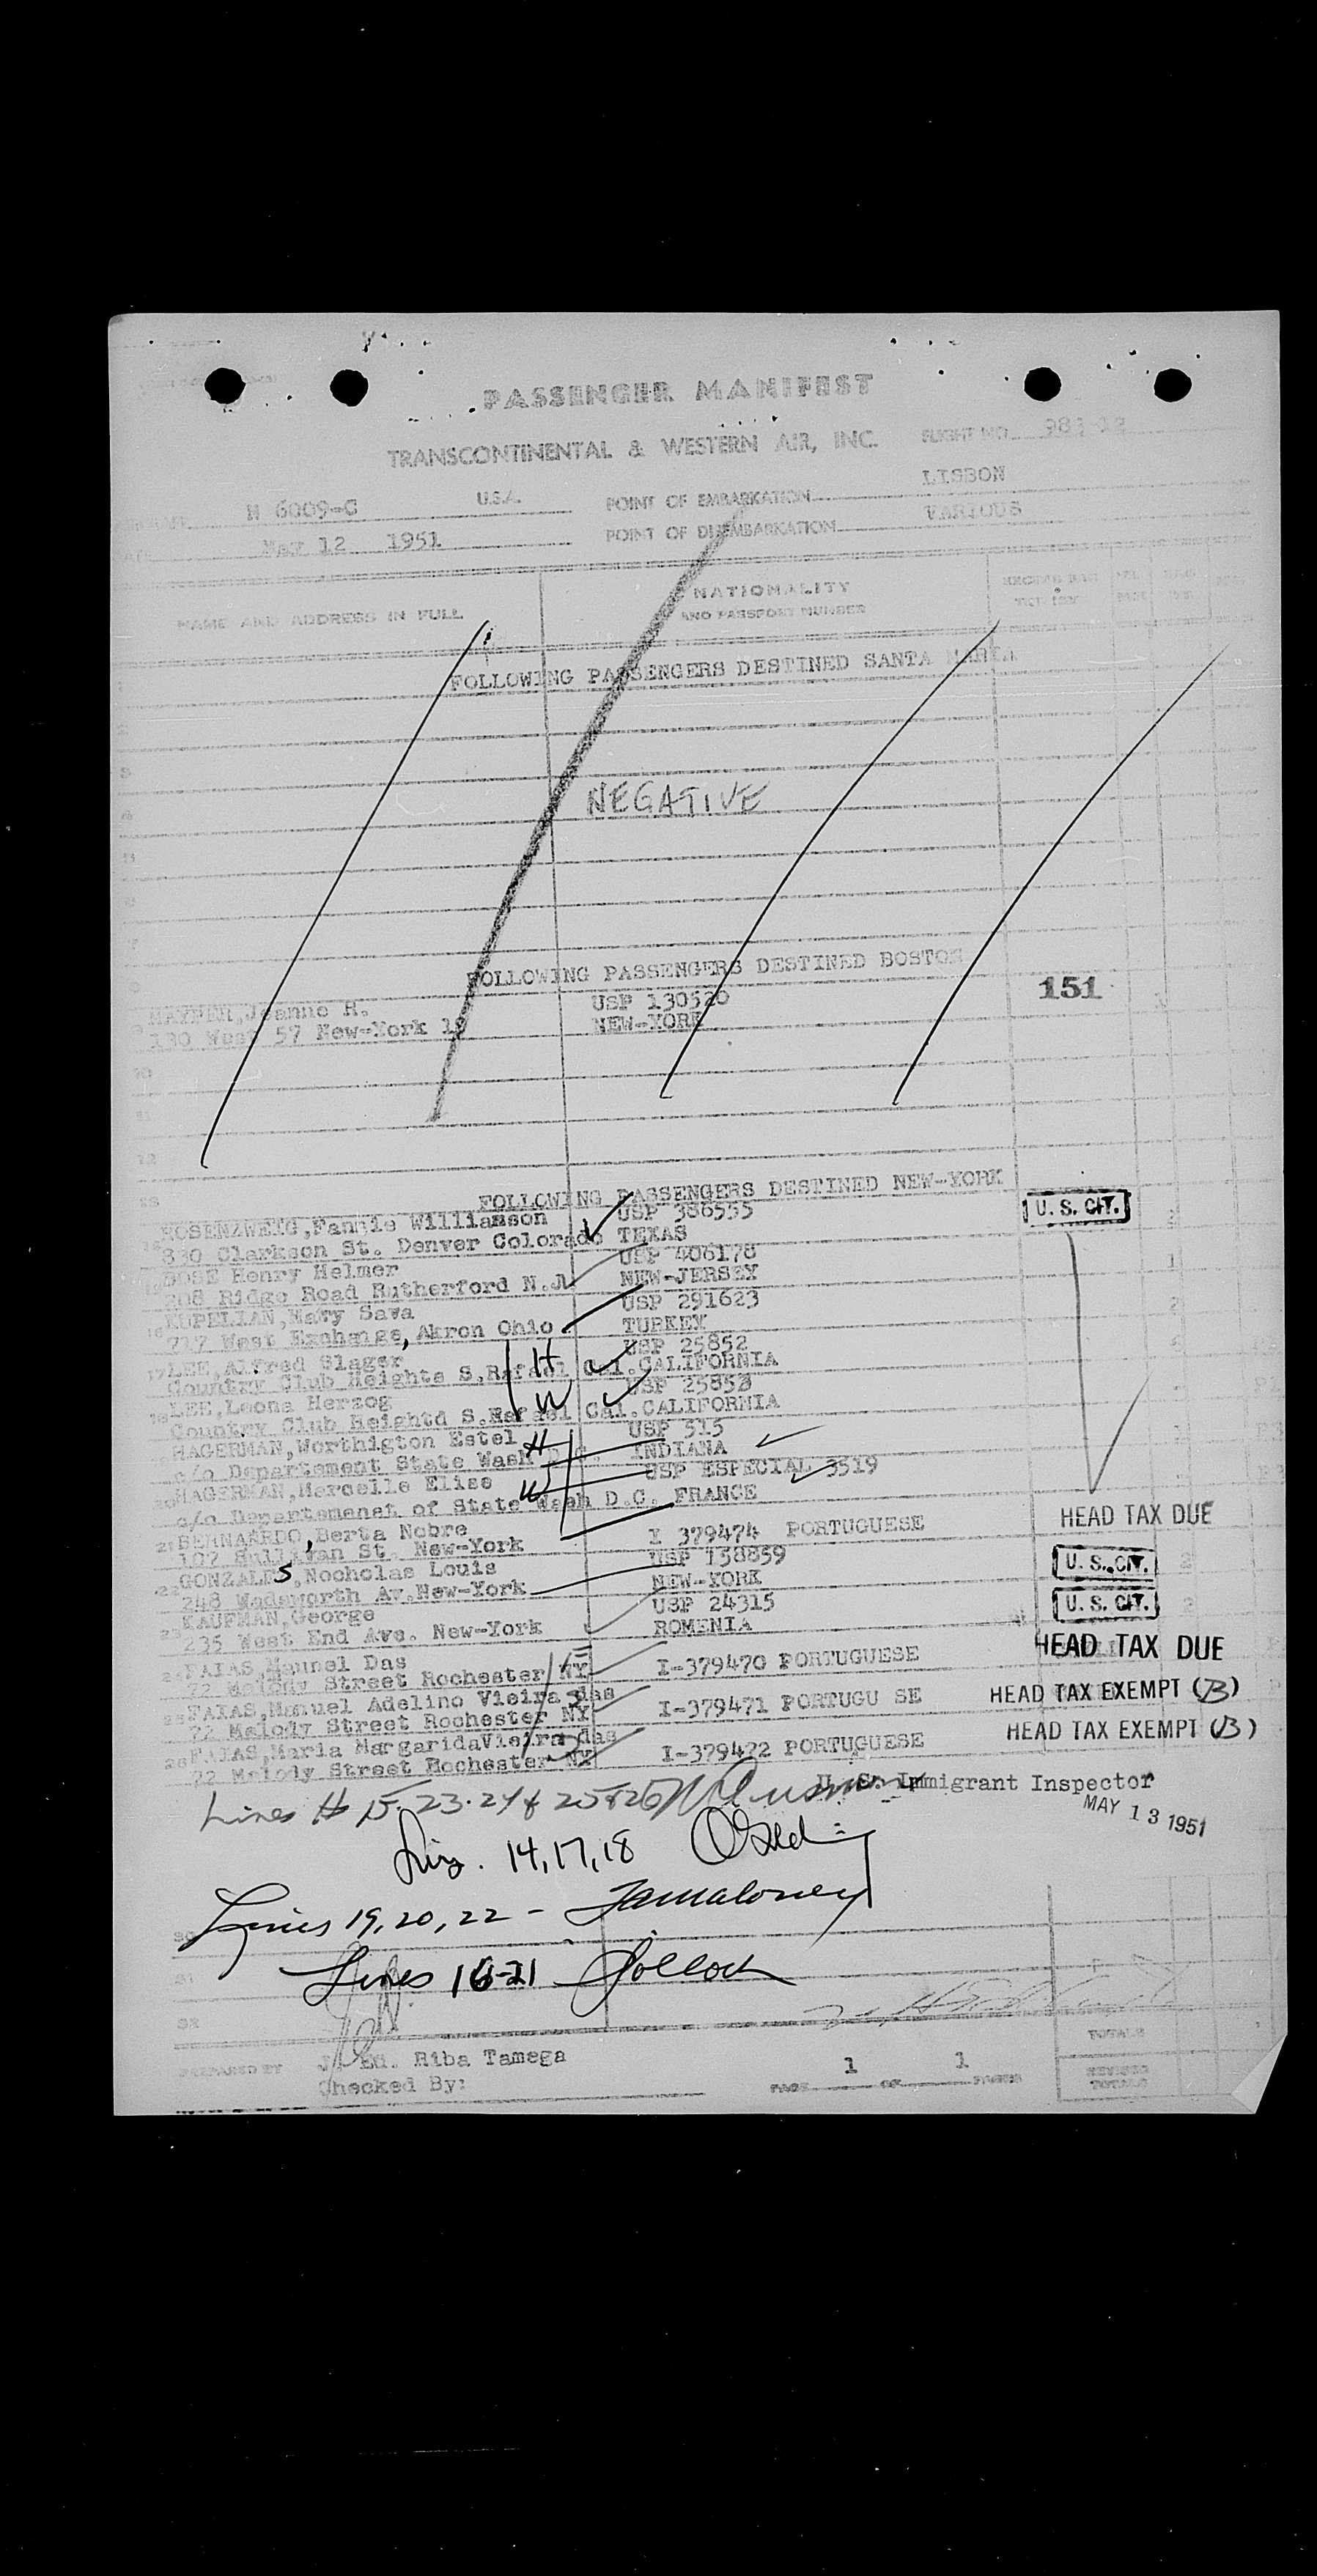 PASSENGER MANIFEST
TRANSCONTINENTAL & WESTERN AIR, INC. FLIGHT NO. 981-12
N 6009-C U.S.A. POINT OF EMBARKATION LISBON
May 12 1951 POINT OF DISEMBARKATION VARIOUS
NAME AND ADDRESS IN FULL NATIONALITY AND PASSPORT NUMBER
FOLLOWING PASSENGERS DESTINED SANTA MARIA
NEGATIVE
FOLLOWING PASSENGERS DESTINED BOSTON
Jeanne R. USP 130520 151
130 West 57 New-York 19 NEW-YORK
FOLLOWING PASSENGERS DESTINED NEW-YORK
ROSENZWEIG,Fannie Williamson USP 386555 U. S. CIT.
830 Clarkson St. Denver Colorado TEXAS
Henry Helmer USP 406178
208 Ridge Road Rutherford N.J. NEW-JERSEY
16 KUPELIAN,Mary Sava USP 291623
717 West Exchange, Akron Ohio TURKEY
17 LEE,Alfred Slager H USP 25852
Country Club Heights S.Rafael Cal.CALIFORNIA
18 LEE,Leona Herzog W USP 25853
Country Club Heightd S.Rafael Cal.CALIFORNIA
HAGERMAN,Worthigton Estel H USP 515
c/o Departement State Wash D.C. INDIANA
20 HAGERMAN,Marcelle Elise W USP ESPECIAL 3519
c/o Departemenst of State Wash D.C. FRANCE
21 BERNAARDO,Berta Nobre I 379474 PORTUGUESE HEAD TAX DUE
107 Sullivan St. New-York
22 GONZALES,Nocholas Louis USP 158859 U. S. CIT.
248 Wadsworth Av.New-York NEW-YORK
23 KAUFMAN,George USP 24315 U. S. CIT.
235 West End Ave. New-York ROMENIA
24 FAIAS,Maunel Das I-379470 PORTUGUESE HEAD TAX DUE
72 Melody Street Rochester NY
25 FAIAS,Manuel Adelino Vieira das I-379471 PORTUGU SE HEAD TAX EXEMPT (B)
72 Melody Street Rochester NY
26 FAIAS,Maria MargaridaVieira das I-379472 PORTUGUESE HEAD TAX EXEMPT (B)
72 Melody Street Rochester NY
U. S. Immigrant Inspector
Lines # 15. 23. 24 & 25 & 26
MAY 13 1951
14, 17, 18
Lines 19, 20, 22 - Jamaloney
Lines 16-21 Pollock
PREPARED BY J. Ed. Riba Tamega
Checked By:
PAGE 1 OF 1 PAGES
TOTALS
REVISED TOTALS